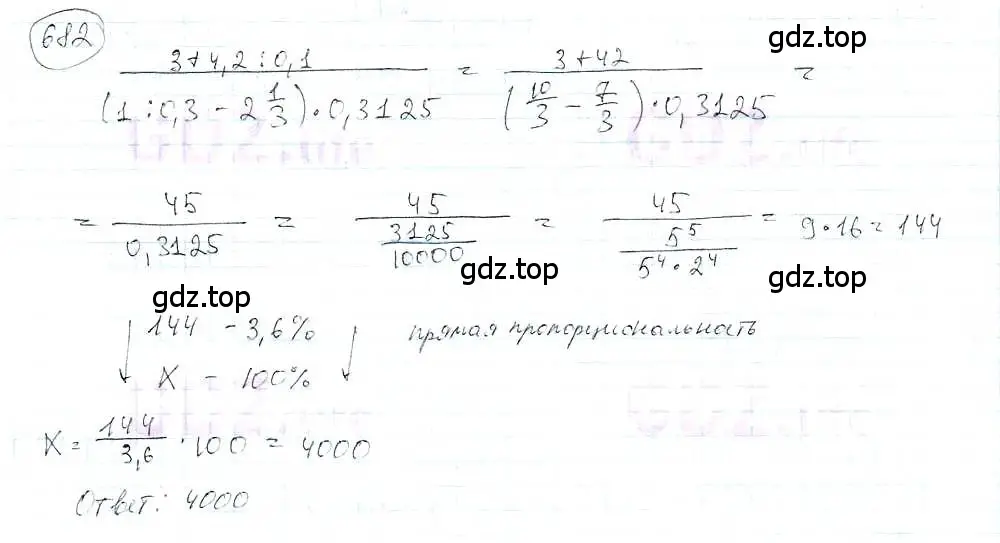 682
gdz.top
(3+4,2:0,1)/((1:0,3 - 2 1/3)·0,3125) = (3+42)/((10/3 - 7/3)·0,3125) =
gdz.top
= 45/0,3125 = 45/(3125/10000) = 45/(5^5/(5^4·2^4)) = 9·16 = 144
gdz.top
gdz.top
gdz.top
↓ 144 - 3,6% ↓ прямая пропорциональность
X - 100%
X = 144/3,6 · 100 = 4000
Ответ: 4000